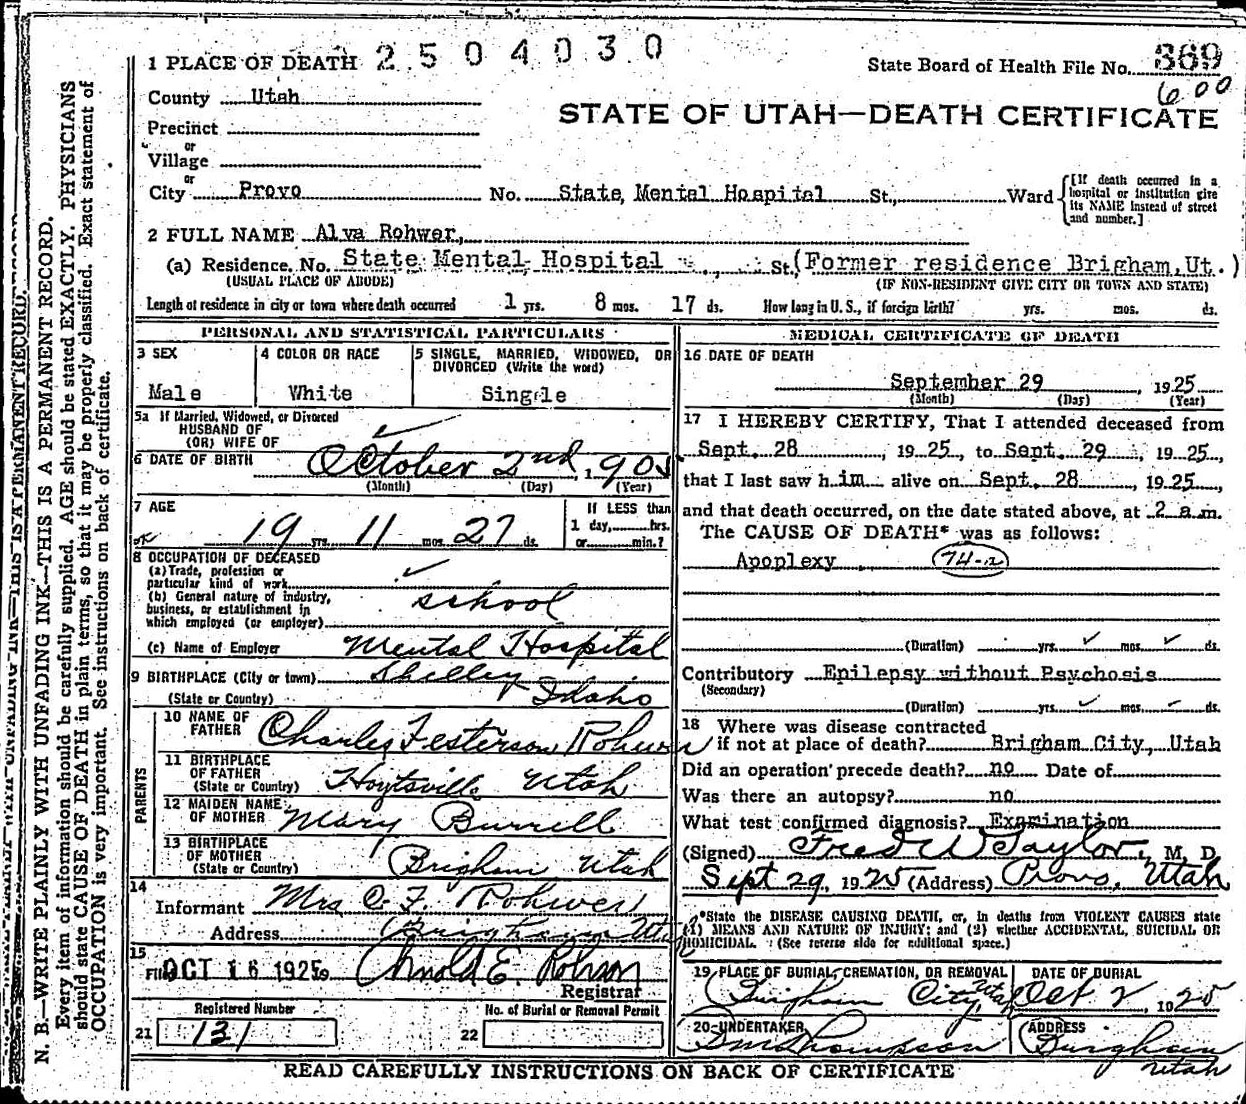 1 PLACE OF DEATH 2504030
State Board of Health File No. 369
600
County Utah
STATE OF UTAH—DEATH CERTIFICATE
Precinct
or
Village
or
City Provo No. State Mental Hospital St., Ward
[If death occurred in a
hospital or institution give
its NAME instead of street
and number.]
2 FULL NAME Alva Rohwer,
(a) Residence. No. State Mental Hospital St. (Former residence Brigham, Ut.)
(USUAL PLACE OF ABODE) (IF NON-RESIDENT GIVE CITY OR TOWN AND STATE)
Length of residence in city or town where death occurred 1 yrs. 8 mos. 17 ds. How long in U. S., if foreign birth? yrs. mos. ds.
PERSONAL AND STATISTICAL PARTICULARS
3 SEX 4 COLOR OR RACE 5 SINGLE, MARRIED, WIDOWED, OR
DIVORCED (Write the word)
Male White Single
5a If Married, Widowed, or Divorced
HUSBAND OF
(OR) WIFE OF
6 DATE OF BIRTH October 2nd, 1905
(Month) (Day) (Year)
7 AGE If LESS than
19 yrs. 11 mos. 27 ds. 1 day, hrs.
or min.?
8 OCCUPATION OF DECEASED
(a) Trade, profession or
particular kind of work
(b) General nature of industry,
business, or establishment in
which employed (or employer) school
(c) Name of Employer Mental Hospital
9 BIRTHPLACE (City or town) Shelley
(State or Country) Idaho
PARENTS
10 NAME OF
FATHER Charles Festerson Rohwer
11 BIRTHPLACE
OF FATHER
(State or Country) Hoytsville Utah
12 MAIDEN NAME
OF MOTHER Mary Burrell
13 BIRTHPLACE
OF MOTHER
(State or Country) Brigham Utah
14
Informant Mrs C. F. Rohwer
Address Brigham Utah
15
Filed OCT 16 1925 Arnold E. Robison
Registrar
Registered Number No. of Burial or Removal Permit
21 131 22
MEDICAL CERTIFICATE OF DEATH
16 DATE OF DEATH
September 29, 1925
(Month) (Day) (Year)
17 I HEREBY CERTIFY, That I attended deceased from
Sept. 28, 1925, to Sept. 29, 1925,
that I last saw him alive on Sept. 28, 1925,
and that death occurred, on the date stated above, at 2 a.m.
The CAUSE OF DEATH* was as follows:
Apoplexy 74-a
(Duration) yrs. mos. ds.
Contributory Epilepsy without Psychosis
(Secondary)
(Duration) yrs. mos. ds.
18 Where was disease contracted
if not at place of death? Brigham City, Utah
Did an operation precede death? no Date of
Was there an autopsy? no
What test confirmed diagnosis? Examination
(Signed) Fred W Taylor, M. D.
Sept 29, 1925 (Address) Provo, Utah
*State the DISEASE CAUSING DEATH, or, in deaths from VIOLENT CAUSES state
(1) MEANS AND NATURE OF INJURY; and (2) whether ACCIDENTAL, SUICIDAL OR
HOMICIDAL. (See reverse side for additional space.)
19 PLACE OF BURIAL, CREMATION, OR REMOVAL DATE OF BURIAL
Brigham City, Utah Oct 2, 1925
20 UNDERTAKER ADDRESS
Thompson Brigham
Utah
READ CAREFULLY INSTRUCTIONS ON BACK OF CERTIFICATE
N. B.—WRITE PLAINLY WITH UNFADING INK—THIS IS A PERMANENT RECORD.
Every item of information should be carefully supplied. AGE should be stated EXACTLY. PHYSICIANS
should state CAUSE OF DEATH in plain terms, so that it may be properly classified. Exact statement of
OCCUPATION is very important. See instructions on back of certificate.